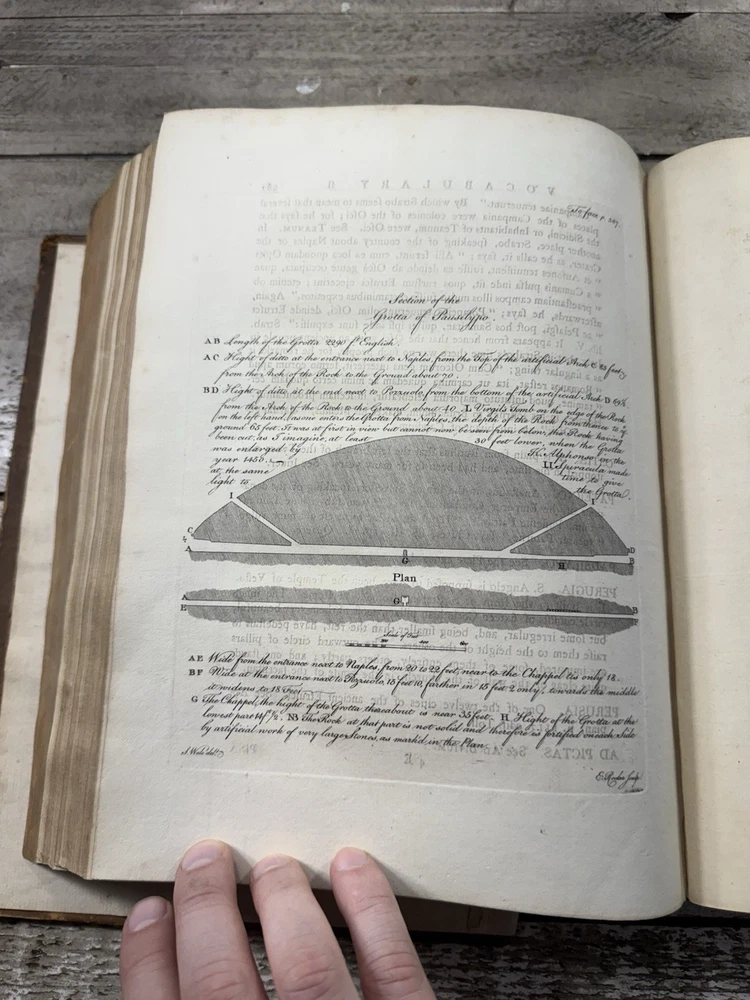 To face p. 287.
Section of the
Grotta of Pausilypo.
AB Length of the Grotta 2290 ft English.
AC Hight of ditto at the entrance next to Naples, from the Top of the artificial Arch C 89 feet,
from the Arch of the Rock to the Ground about 70.
BD Hight of ditto at the end next to Pozzuolo, from the bottom of the artificial Arch D
from the Arch of the Rock to the Ground about 40. L Virgils Tomb on the edge of the Rock
on the left hand, as one enters the Grotta from Naples, the depth of the Rock from thence to ye
ground 65 feet. It was at first in view but cannot now be seen from below, the Rock having
been cut, as I imagine, at least 30 feet lower, when the Grotta
was enlarged by K. Alphonso in the
year 1450. II Spiracula made
at the same time to give
light to the Grotta.
I
I
C
A
G
H
D
B
Plan
A
E
G
B
F
Scale of Feet
AE Wide from the entrance next to Naples from 20 to 22 feet, near to the Chappel tis only 18.
BF Wide at the entrance next to Pozzuolo, 15 feet 10, farther in 15 feet 2 only, towards the middle
it widens to 18 Feet.
G The Chappel, the hight of the Grotta thereabout is near 35 feet. H Hight of the Grotta at the
lowest part 14 ft ½. NB The Rock at that part is not solid and therefore is fortified on each Side
by artificial work of very large Stones, as mark'd in the Plan.
J. Wale delt.
E. Rooker Sculp.